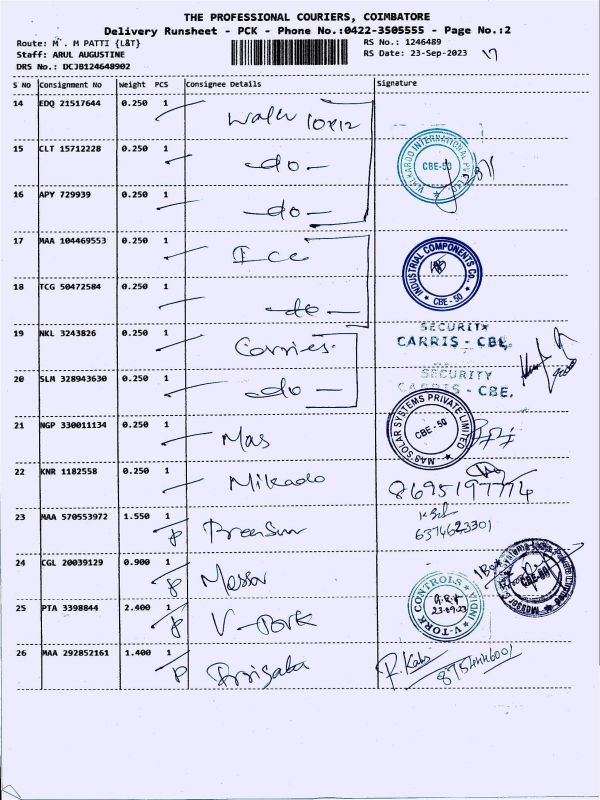 THE PROFESSIONAL COURIERS, COIMBATORE
Delivery Runsheet - PCK - Phone No.:0422-3505555 - Page No.:2
Route: M . M PATTI {L&T}
RS No.: 1246489
Staff: ARUL AUGUSTINE
RS Date: 23-Sep-2023 17
DRS No.: DCJB124648902
S No Consignment No Weight PCS Consignee Details Signature
14 EDQ 21517644 0.250 1
15 CLT 15712228 0.250 1 -do-
WALKAROO INTERNATIONAL PVT LTD CBE-50
16 APY 729939 0.250 1 -do-
17 MAA 104469553 0.250 1 I cc
INDUSTRIAL COMPONENTS Co., CBE - 50
18 TCG 50472584 0.250 1 -do-
19 NKL 3243826 0.250 1 Carries.
SECURITY
CARRIS - CBE.
20 SLM 328943630 0.250 1 -do-
SECURITY
CARRIS - CBE.
21 NGP 330011134 0.250 1 Mas
MAS SOLAR SYSTEMS PRIVATE LIMITED CBE - 50
22 KNR 1182558 0.250 1 Mikado
8695197774
23 MAA 570553972 1.550 1
6374623301
24 CGL 20039129 0.900 1 Messor
CBE-50
25 PTA 3398844 2.400 1 V-Tork
V-TORK CONTROLS 23.09.23
26 MAA 292852161 1.400 1
R. Kabs 8754446001